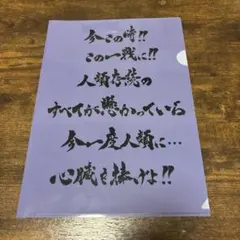 今この時!!
この一戦に!!
人類存続の
すべてが懸かっている
今一度人類に…
心臓を捧げよ!!